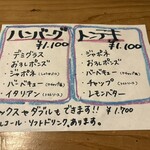 ハンバーグ
¥1.100
・デミグラス
・おろしポンズ
・ジャポネ
・バーベキュー
・イタリアン
トンテキ
¥1.100
・ジャポネ
・おろしポンズ
・バーベキュー
・チャップ
・レモンバター
ックスやダブルもできます!! ¥1.700
コール・ソフトドリンクあります。